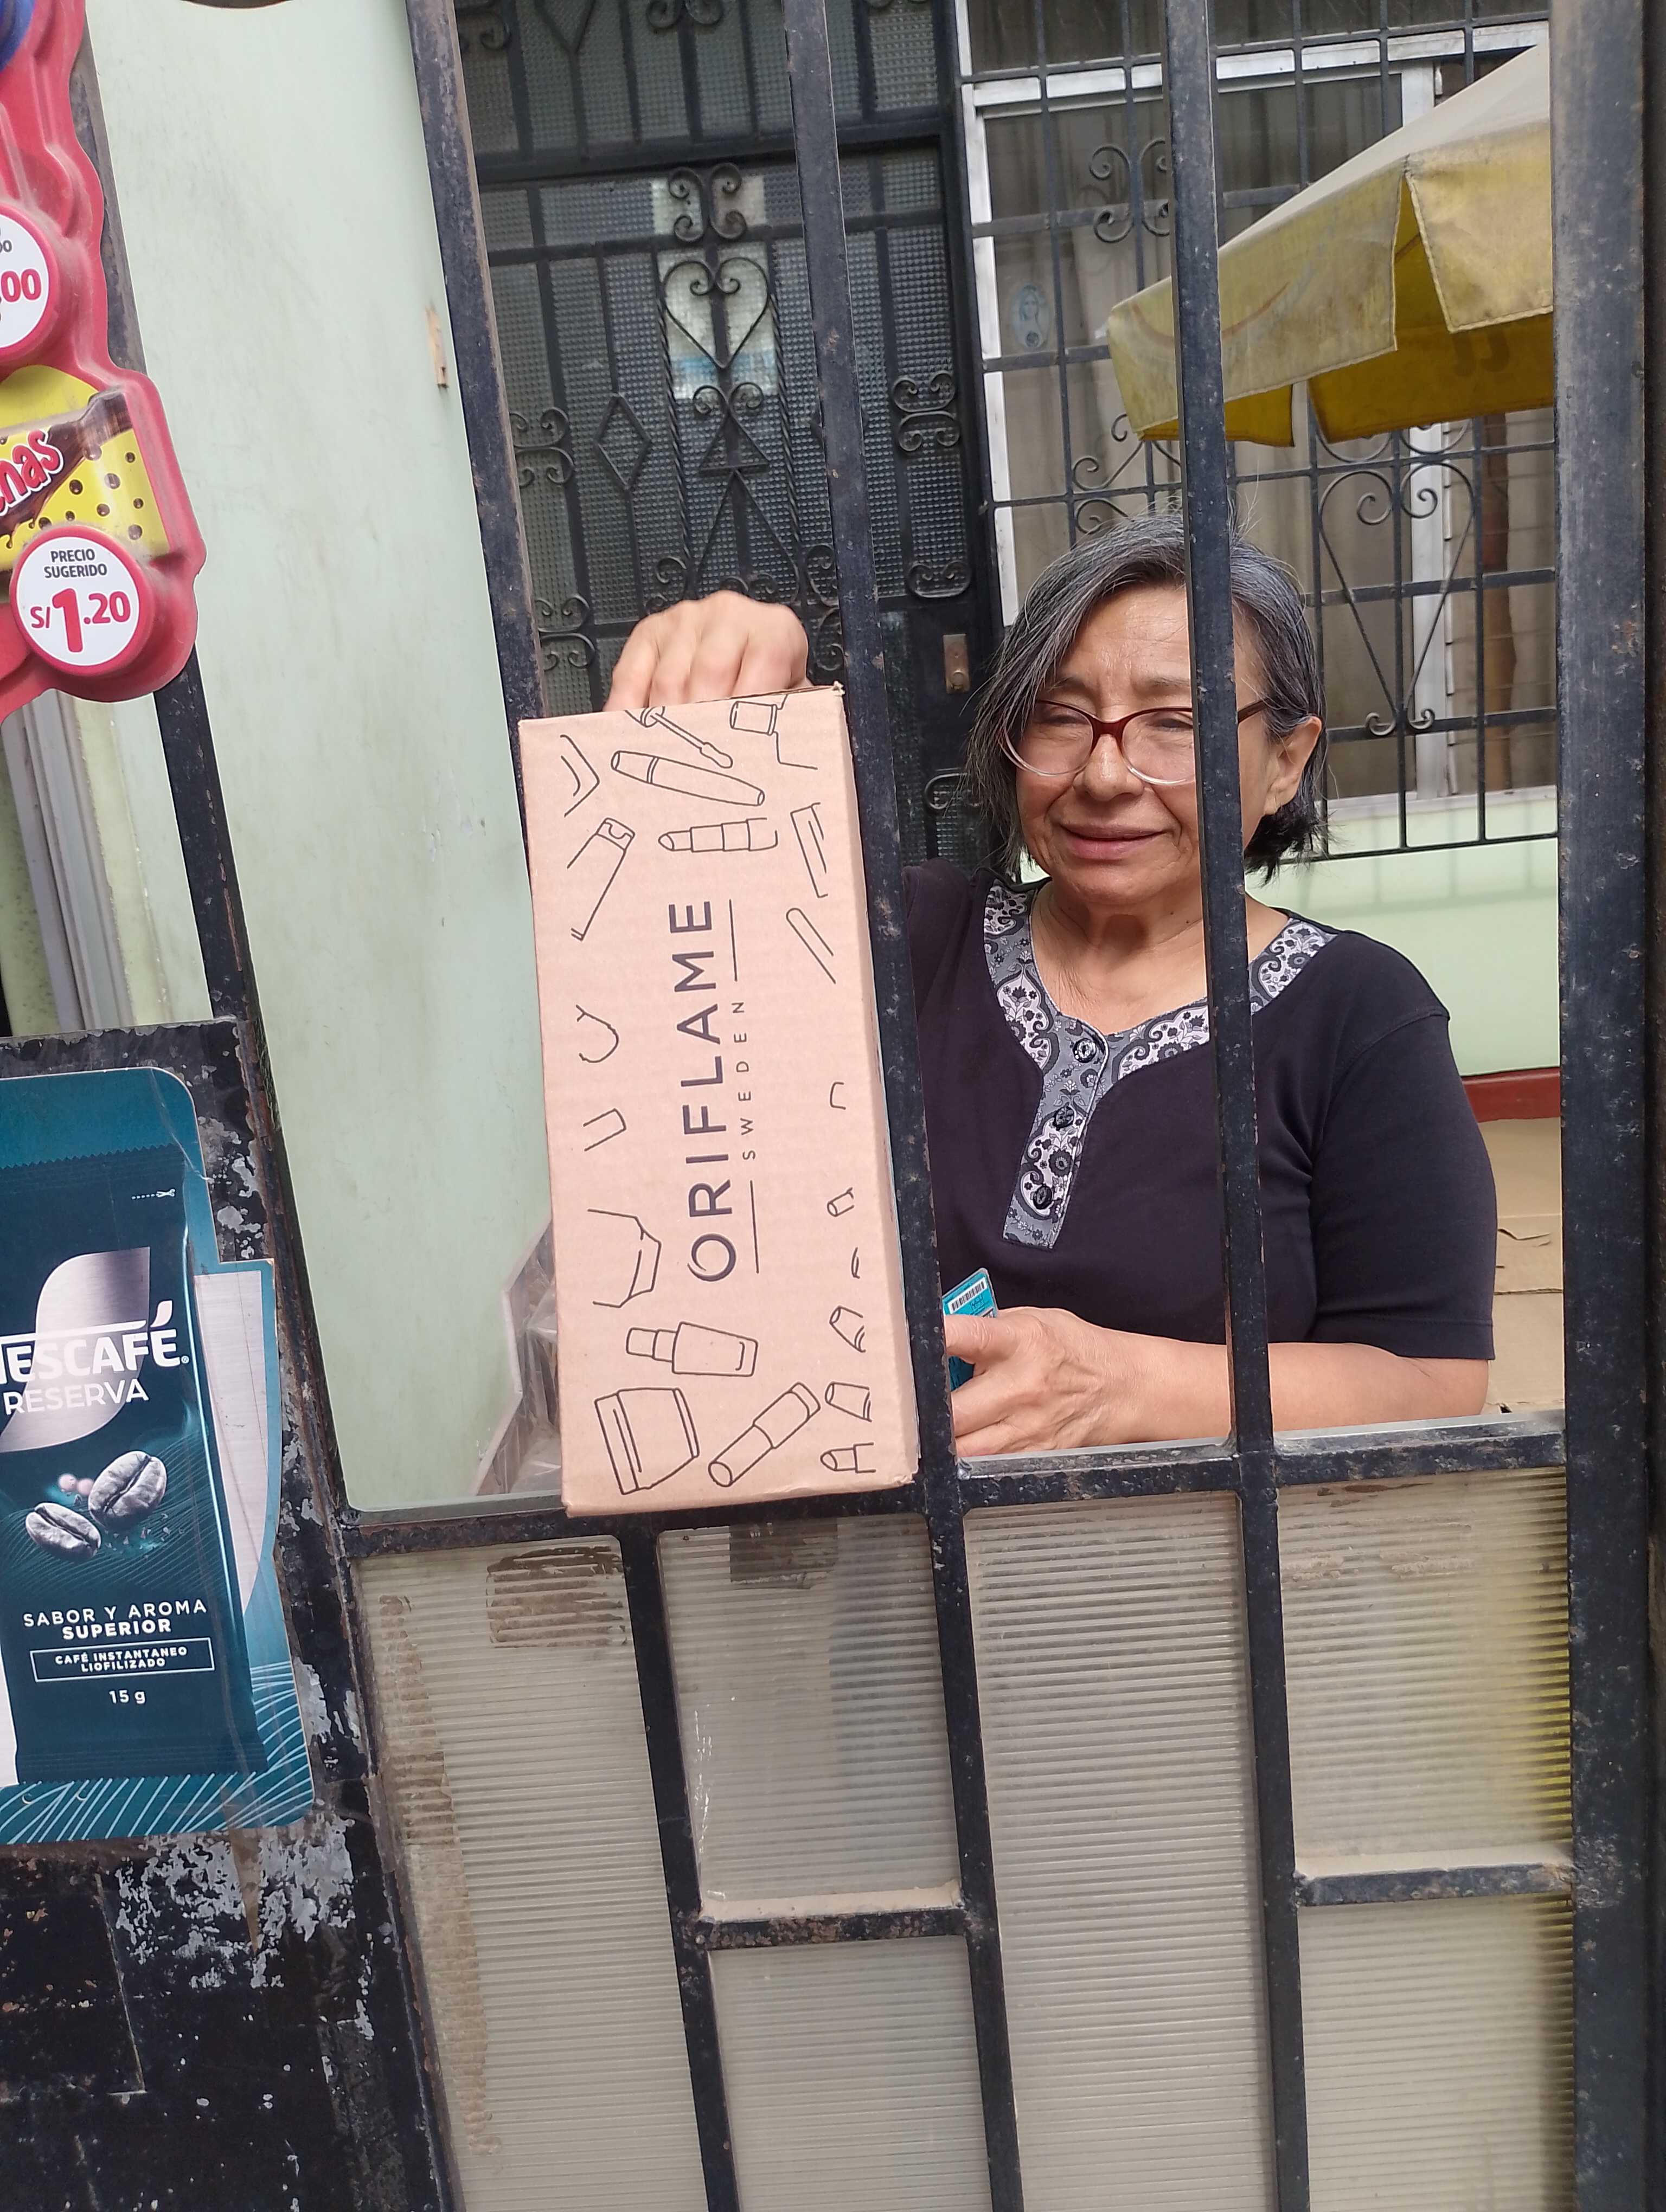 .00
PRECIO
SUGERIDO
S/1.20
ORIFLAME
SWEDEN
RESERVA
SABOR Y AROMA
SUPERIOR
CAFÉ INSTANTANEO
LIOFILIZADO
15 g